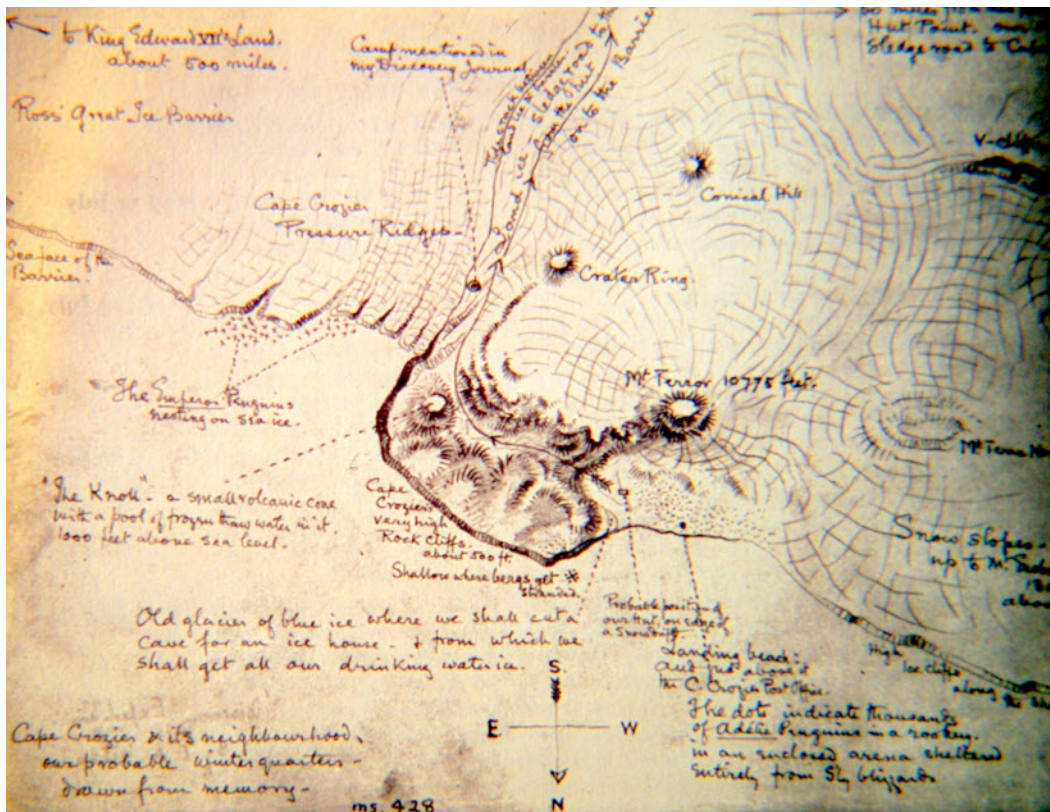 to King Edward VII's Land.
about 500 miles.
Ross' Great Ice Barrier
Camp mentioned in
my Discovery Journal
Hut Point. over
Sledge road to
land ice & barrier
Good ice Sledge road to
from the hut
on to the Barrier
Conical Hill
Cape Crozier
Pressure Ridges
Crater Ring.
Sea face of the
Barrier.
The Emperor Penguins
nesting on sea ice.
Mt Terror 10775 feet.
Mt Terra
"The Knoll" - a small volcanic cone
with a pool of frozen thaw water in it.
1000 feet above sea level.
Cape
Crozier
very high
Rock Cliffs.
about 500 ft.
Shallow where bergs get
stranded.
Snow slopes
up to M.
Old glacier of blue ice where we shall cut a
cave for an ice house - & from which we
shall get all our drinking water ice.
Probable position of
our Hut, on edge of
a Snowdrift
Landing beach:
and just above it
the C. Crozier Post Office.
The dots indicate thousands
of Adélie Penguins in a rookery.
in an enclosed arena sheltered
entirely from Sly blizzards
High
Ice cliffs
along the
S.
E W
N
Cape Crozier & its neighbourhood,
our probable winter quarters -
drawn from memory -
ms. 428